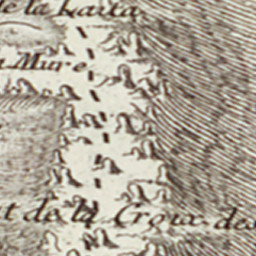 de la Kaita
Mure
t de la Croix des